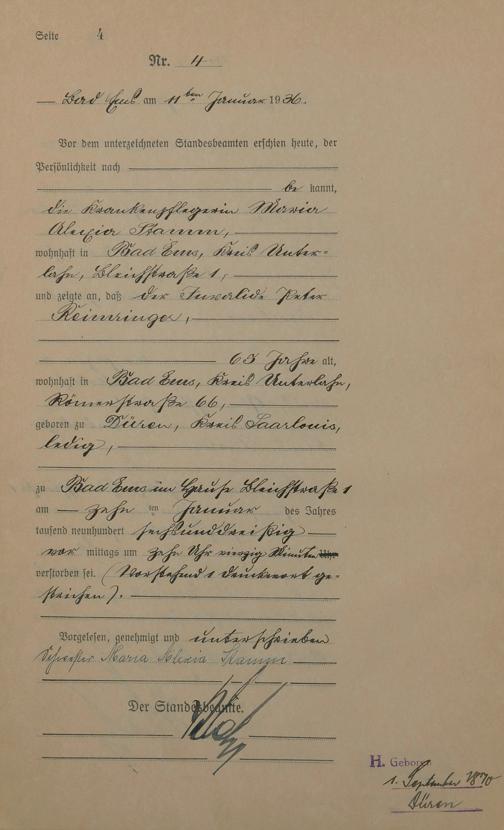 Seite 4
Nr. 4
Bad Ems am 11ten Januar 1936.
Vor dem unterzeichneten Standesbeamten erschien heute, der
Persönlichkeit nach
be kannt,
die Krankenpflegerin Maria
Alexia Stamm,
wohnhaft in Bad Ems, Kreis Unter=
lahn, Bleichstraße 1,
und zeigte an, daß der Invalide Peter
Reimringer,
65 Jahre alt,
wohnhaft in Bad Ems, Kreis Unterlahn,
Römerstraße 66,
geboren zu Düren, Kreis Saarlouis,
ledig,
zu Bad Ems im Hause Bleichstraße 1
am zehn ten Januar des Jahres
tausend neunhundert sechsunddreißig
vor mittags um zehn Uhr vierzig Minuten Uhr
verstorben sei. (Vorstehend 1 Druckwort ge=
strichen).
Vorgelesen, genehmigt und unterschrieben
Schwester Maria Alexia Stamm
Der Standesbeamte.
H. Gebor
1. September 1870
Düren